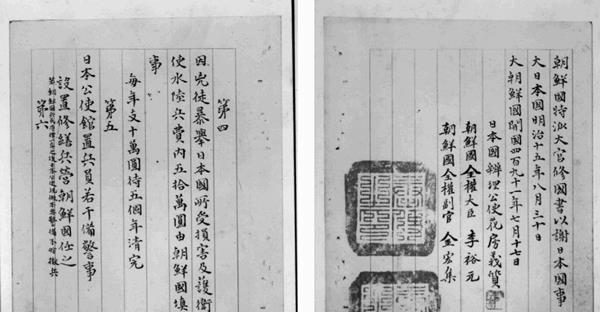 第四
因兇徒暴舉日本國所受損害及護衛
使水陸兵費內五拾萬圓由朝鮮國填
事
每年支十萬圓待五個年清完
第五
日本公使館置兵員若干備警事
設置修繕兵營朝鮮國任之
若朝鮮國兵民守律一年之後日本公使視做不要警備不妨撤兵
第六
朝鮮國特派大官修國書以謝日本國事
大日本國明治十五年八月三十日
大朝鮮國開國四百九十一年七月十七日
日本國辨理公使花房義質
朝鮮國全權大臣 李裕元
朝鮮國全權副官 金宏集